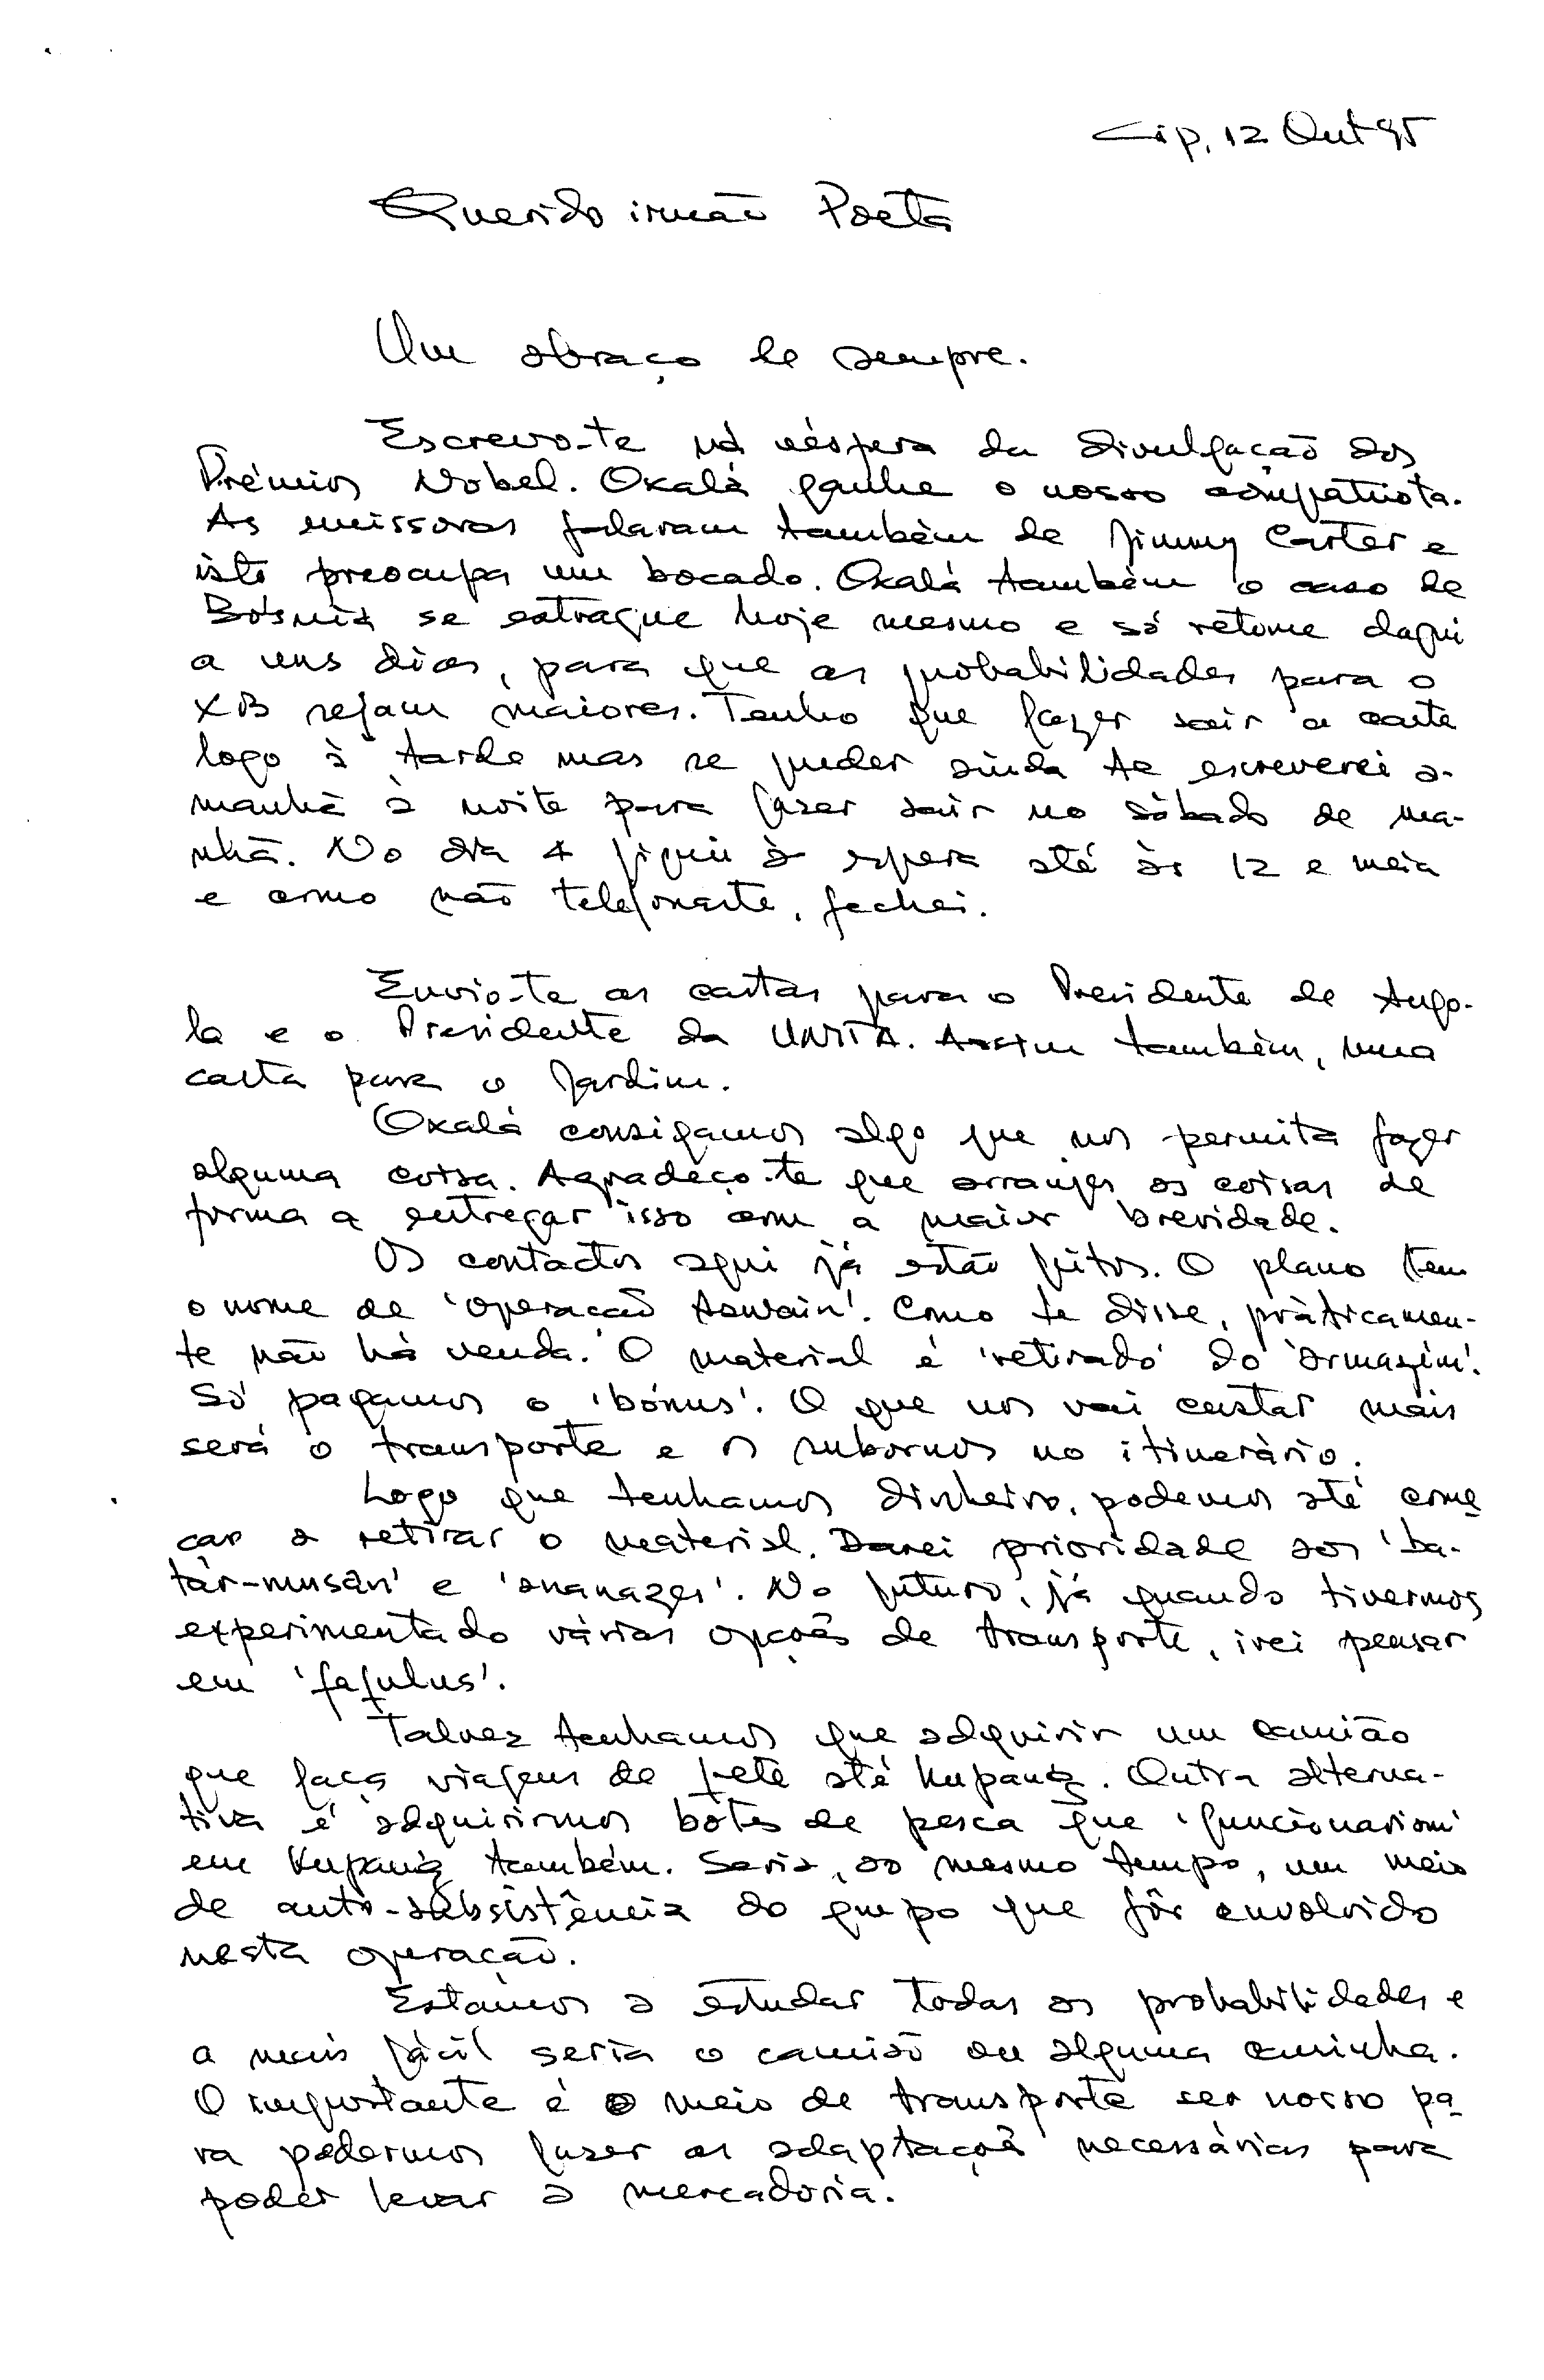 Cip, 12 Out 95
Querido irmão Poeta
Um abraço de sempre.
Escrevo-te na véspera da divulgação dos
Prémios Nobel. Oxalá ganhe o nosso compatriota.
As emissoras falaram também de Jimmy Carter e
isto preocupa um bocado. Oxalá também o caso de
Bósnia se estrague hoje mesmo e só retome daqui
a uns dias, para que as probabilidades para o
XB sejam maiores. Tenho que fazer sair a carta
logo à tarde mas se puder ainda te escreverei a-
manhã à noite para fazer sair no sábado de ma-
nhã. No dia 4 fiquei à espera até às 12 e meia
e como não telefonaste, fechei.
Envio-te as cartas para o Presidente de Ango-
la e o Presidente da UNITA. Assim também, uma
carta para o Jardim.
Oxalá consigamos algo que nos permita fazer
alguma coisa. Agradeço-te que arranjes as coisas de
forma a entregar isso com a maior brevidade.
Os contactos aqui já estão feitos. O plano tem
o nome de 'operação Aswain'. Como te disse, pràticamen-
te não há venda. O material é 'retirado' do 'armazém'.
Só pagamos o 'bónus'. O que nos vai custar mais
será o transporte e os subornos no itinerário.
Logo que tenhamos dinheiro, podemos até come
çar a retirar o material. Darei prioridade aos 'ba-
tár-musan' e 'ananazes'. No futuro, já quando tivermos
experimentado várias opções de transporte, irei pensar
em 'fafulus'.
Talvez tenhamos que adquirir um camião
que faça viagens de frete até Kupang. Outra alterna-
tiva é adquirirmos botes de pesca que 'funcionariam'
em Kupang também. Seria, ao mesmo tempo, um meio
de auto-subsistência do grupo que fôr envolvido
nesta operação.
Estamos a estudar todas as probabilidades e
a mais fácil seria o camião ou alguma carrinha.
O importante é o meio de transporte ser nosso pa
ra podermos fazer as adaptações necessárias para
poder levar a mercadoria.